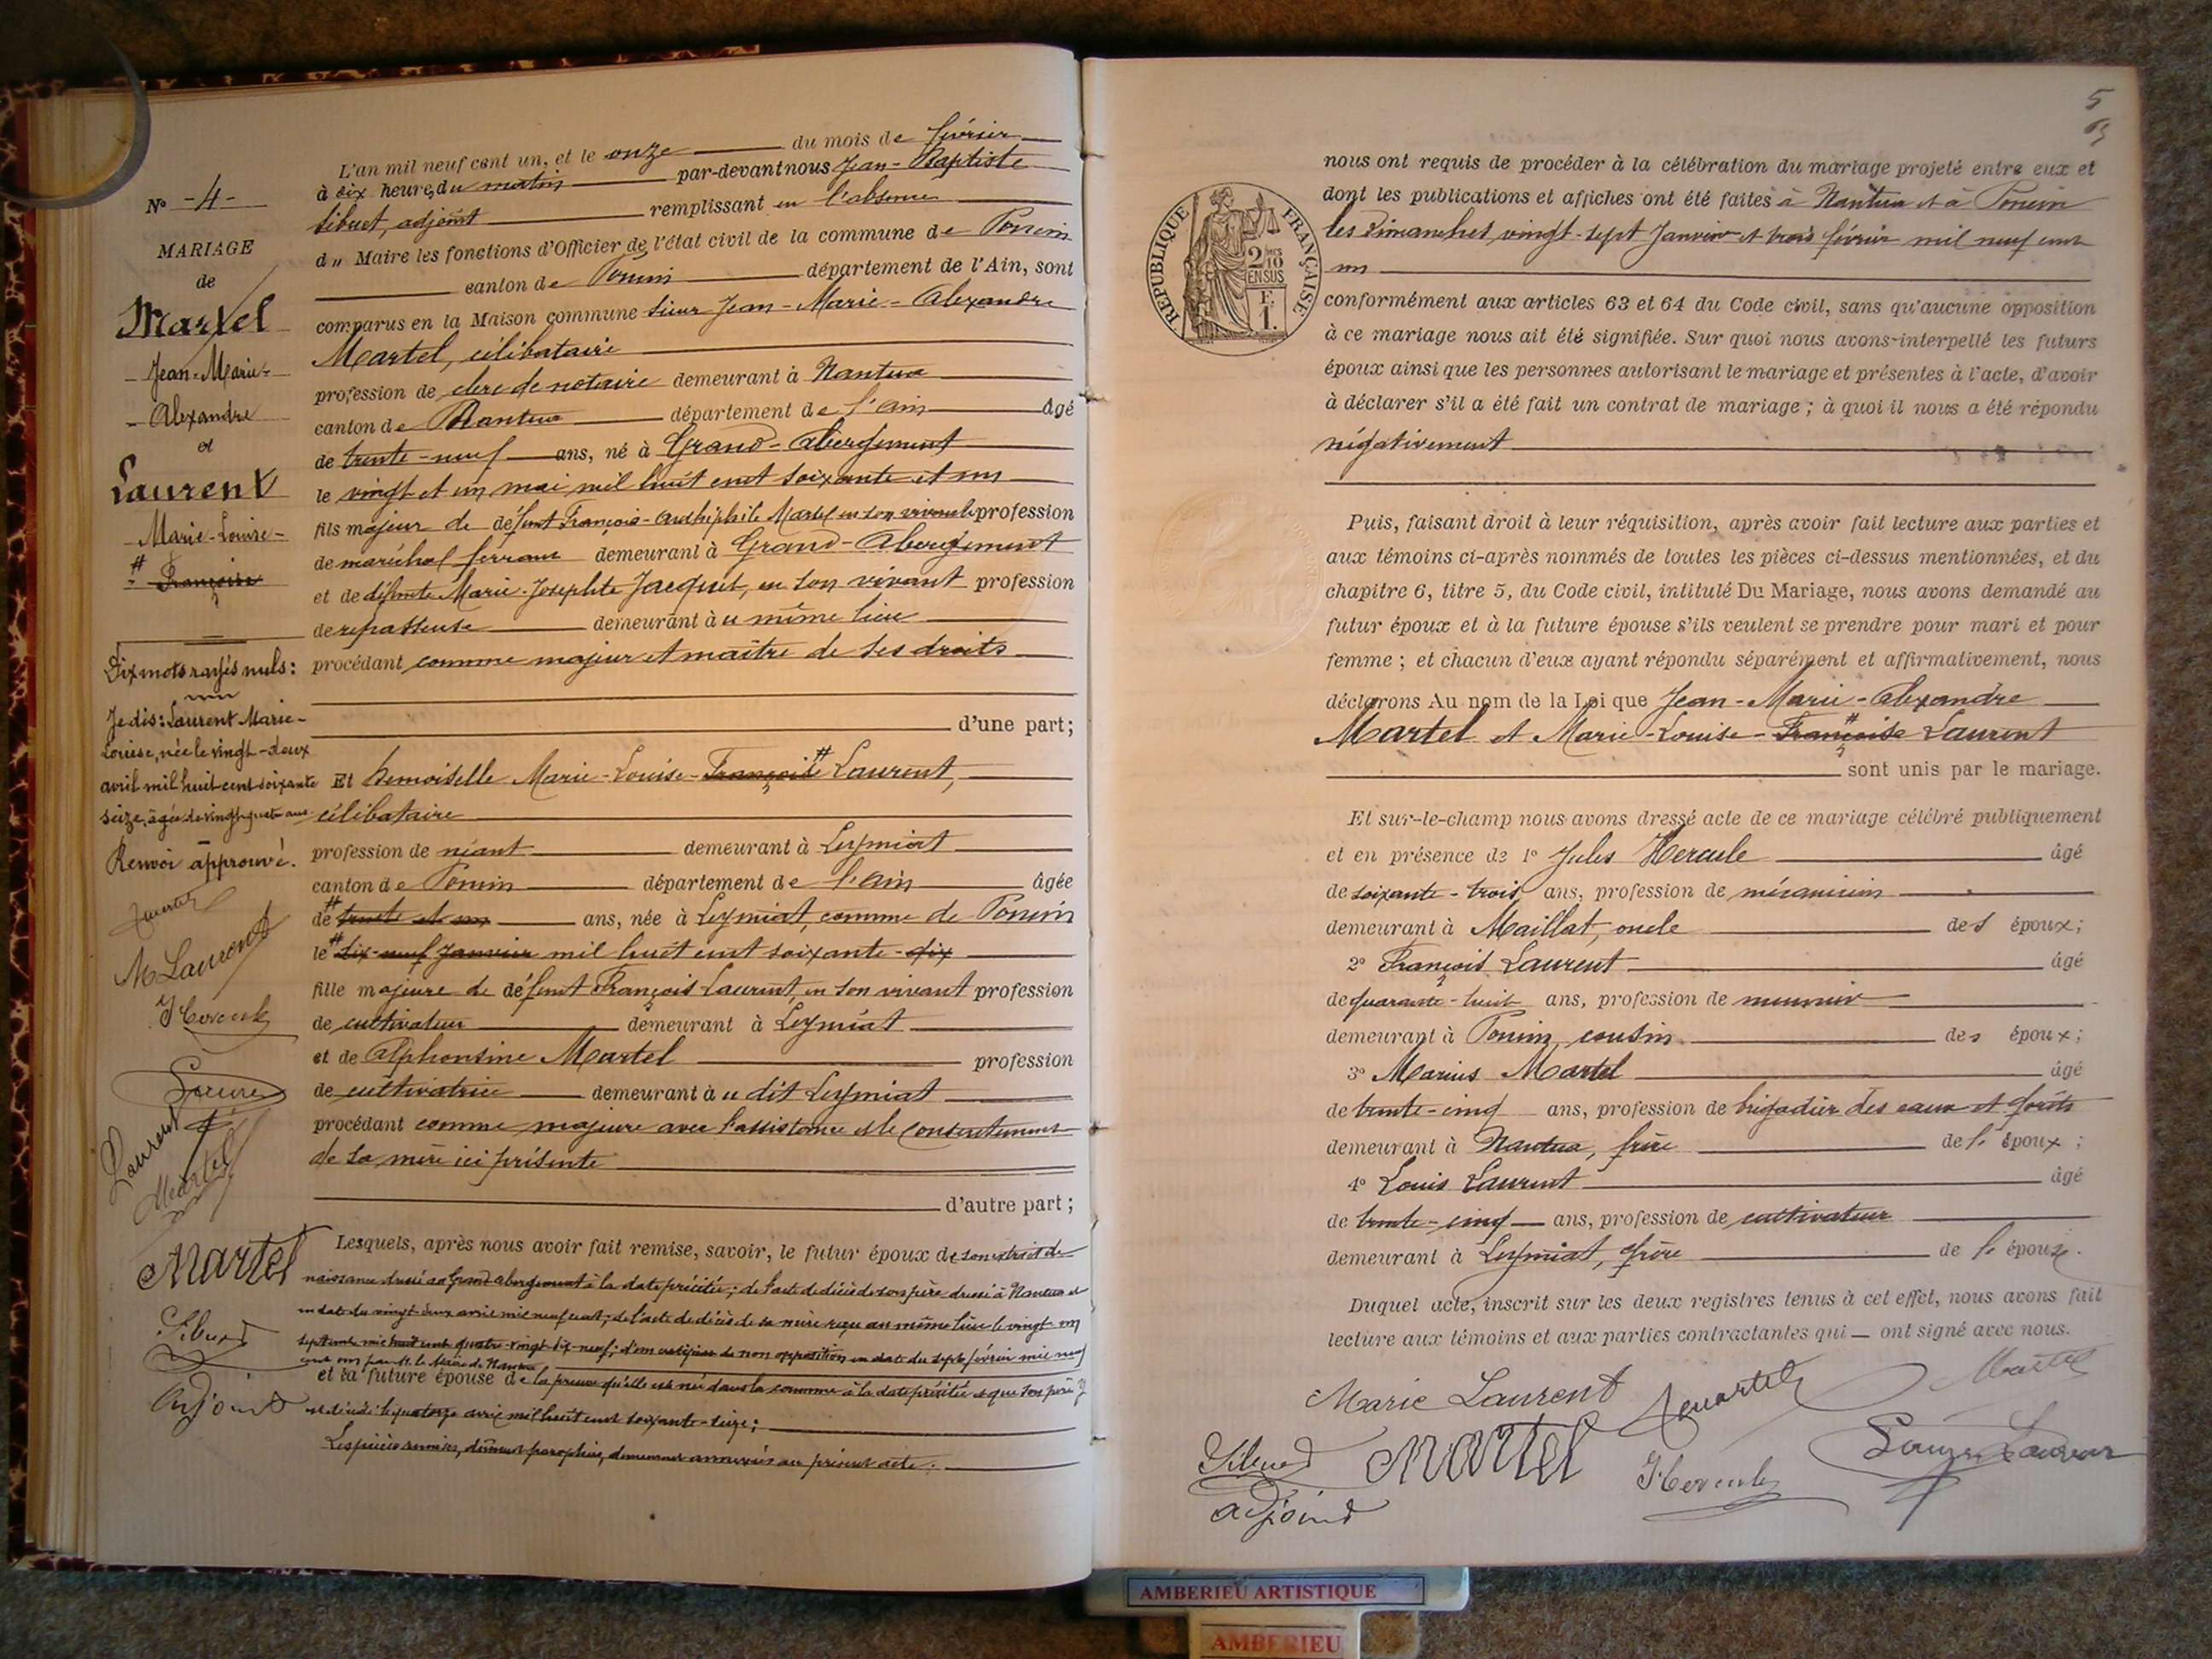 N° -4-
MARIAGE
de
Martel
Jean-Marie-
Alexandre
et
Laurent
Marie-Louise-
# Françoise
Dix mots rayés nuls:
Je dis: Laurent Marie-
Louise, née le vingt-deux
avril mil huit cent soixante
seize, âgée de vingt-quatre ans
Renvoi approuvé.
M Laurent
JHercule
Laurent
Martel
Martel
Sibuet
adjoint
L'an mil neuf cent un, et le onze du mois de février
à dix heures du matin par-devant nous Jean-Baptiste
Sibuet, adjoint remplissant en l'absence
du Maire les fonctions d'Officier de l'état civil de la commune de Poncin
canton de Poncin département de l'Ain, sont
comparus en la Maison commune sieur Jean-Marie-Alexandre
Martel, célibataire
profession de clerc de notaire demeurant à Nantua
canton de Nantua département de l'Ain âgé
de trente-neuf ans, né à Grand-Abergement
le vingt et un mai mil huit cent soixante et un
fils majeur de défunt François- Martel en son vivant profession
de maréchal ferrant demeurant à Grand-Abergement
et de défunte Marie-Josephte Jacquet, en son vivant profession
de repasseuse demeurant au même lieu
procédant comme majeur et maître de ses droits
d'une part;
Et Demoiselle Marie-Louise-Françoise # Laurent,
célibataire
profession de néant demeurant à Leymiat
canton de Poncin département de l'Ain âgée
de # trente et un ans, née à Leymiat, comme de Poncin
le # dix-neuf Janvier mil huit cent soixante-dix
fille majeure de défunt François Laurent, en son vivant profession
de cultivateur demeurant à Leymiat
et de Alphonsine Martel profession
de cultivatrice demeurant au dit Leymiat
procédant comme majeure avec l'assistance et le consentement
de sa mère ici présente
d'autre part;
Lesquels, après nous avoir fait remise, savoir, le futur époux de son extrait de
naissance dressé au Grand Abergement à la date précitée; de l'acte de décès de son père dressé à Nantua et
en date du vingt deux avril mil neuf cent; de l'acte de décès de sa mère reçu au même lieu le vingt un
septembre mil huit cent quatre-vingt dix-neuf; d'un certificat de non opposition en date du sept février mil neuf
cent un par M. le Maire de Nantua
et la future épouse de la preuve qu'elle est née dans la commune à la date précitée et que son père y
est décédé le quatorze avril mil huit cent soixante-seize;
Les pièces remises, dûment paraphées, demeurent annexées au présent acte.
5
REPUBLIQUE FRANÇAISE
2/10
EN SUS
F.
1.
nous ont requis de procéder à la célébration du mariage projeté entre eux et
dont les publications et affiches ont été faites à Nantua et à Poncin
les Dimanches vingt-sept Janvier et trois février mil neuf cent
un
conformément aux articles 63 et 64 du Code civil, sans qu'aucune opposition
à ce mariage nous ait été signifiée. Sur quoi nous avons interpellé les futurs
époux ainsi que les personnes autorisant le mariage et présentes à l'acte, d'avoir
à déclarer s'il a été fait un contrat de mariage; à quoi il nous a été répondu
négativement
Puis, faisant droit à leur réquisition, après avoir fait lecture aux parties et
aux témoins ci-après nommés de toutes les pièces ci-dessus mentionnées, et du
chapitre 6, titre 5, du Code civil, intitulé Du Mariage, nous avons demandé au
futur époux et à la future épouse s'ils veulent se prendre pour mari et pour
femme; et chacun d'eux ayant répondu séparément et affirmativement, nous
déclarons Au nom de la Loi que Jean-Marie-Alexandre
Martel et Marie-Louise-Françoise # Laurent
sont unis par le mariage.
Et sur-le-champ nous avons dressé acte de ce mariage célébré publiquement
et en présence de 1° Jules Hercule âgé
de soixante-trois ans, profession de mécanicien
demeurant à Maillat, oncle des époux;
2° François Laurent âgé
de quarante-huit ans, profession de meunier
demeurant à Poncin, cousin des époux;
3° Marius Martel âgé
de trente-cinq ans, profession de brigadier des eaux et forêts
demeurant à Nantua, frère de l'époux;
4° Louis Laurent âgé
de trente-cinq ans, profession de cultivateur
demeurant à Leymiat, frère de l'épouse.
Duquel acte, inscrit sur les deux registres tenus à cet effet, nous avons fait
lecture aux témoins et aux parties contractantes qui ont signé avec nous.
Marie Laurent
Martel
Sibuet
Martel
JHercule
Laurent
adjoint
AMBERIEU ARTISTIQUE
AMBERIEU